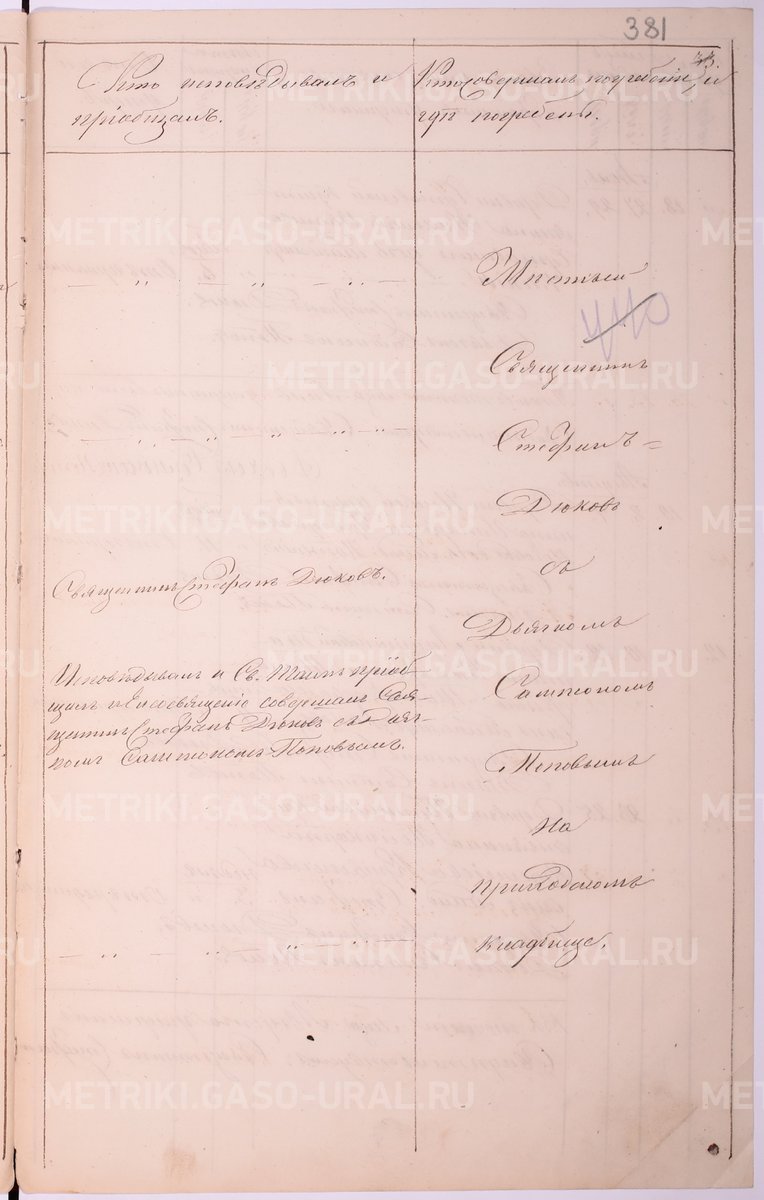 381
33.
Кто исповѣдывалъ и
пріобщалъ.
Кто совершалъ погребеніе, и
гдѣ погребены.
— „ — „ — „ —
Мѣстный
440
Священникъ
— „ — „ — „ — „ —
Стефанъ
Дюковъ
съ
Священникъ Стефанъ Дюковъ.
Дьякономъ
Исповѣдывалъ и Св. Таинъ пріоб-
щилъ и Елеосвященіе совершалъ Свя-
щенникъ Стефанъ Дюковъ съ Дья-
кономъ Сампсономъ Поповымъ.
Сампсономъ
Поповымъ
На
приходскомъ
— „ — „ — „ — „ —
кладбищѣ.
METRIKI.GASO-URAL.RU